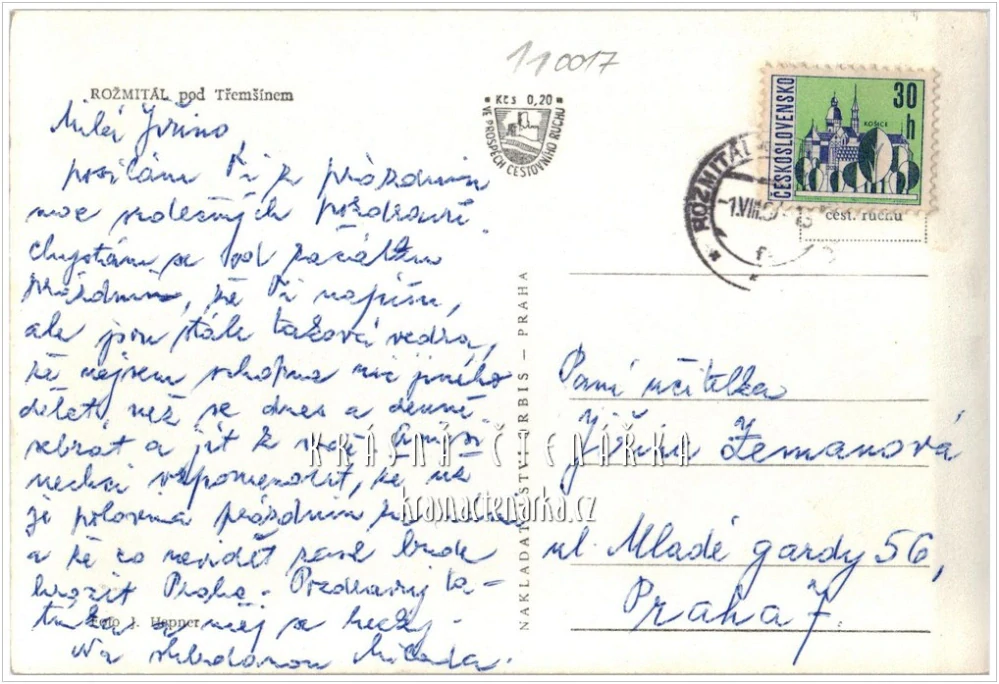 110017
ROŽMITÁL pod Třemšínem
Kčs 0,20
VE PROSPĚCH CESTOVNÍHO RUCHU
ČESKOSLOVENSKO
30 h
KOŠICE
ROŽMITÁL
1.VIII.
cest. ruchu
Milá Jiřino,
posílám Ti z prázdnin
moc srdečných pozdravů
chystám se od začátku
prázdnin, že Ti napíšu,
ale jsou stále taková vedra,
že nejsem schopna nic jiného
dělat, než se dnes a denně
sebrat a jít k vodě.
nechci vzpomenout, že už
je polovina prázdnin
a že co nevidět zase bude
hrozit Praha. Pozdravuj ta-
tínka a měj se hezky.
Na shledanou Milada.
Foto J. Hepner
NAKLADATELSTVÍ ORBIS – PRAHA
Paní učitelka
Jiřina Zemanová
ul. Mladé gardy 56,
Praha 7
KRÁSNÁ ČTENÁRKA
krasnactenarka.cz